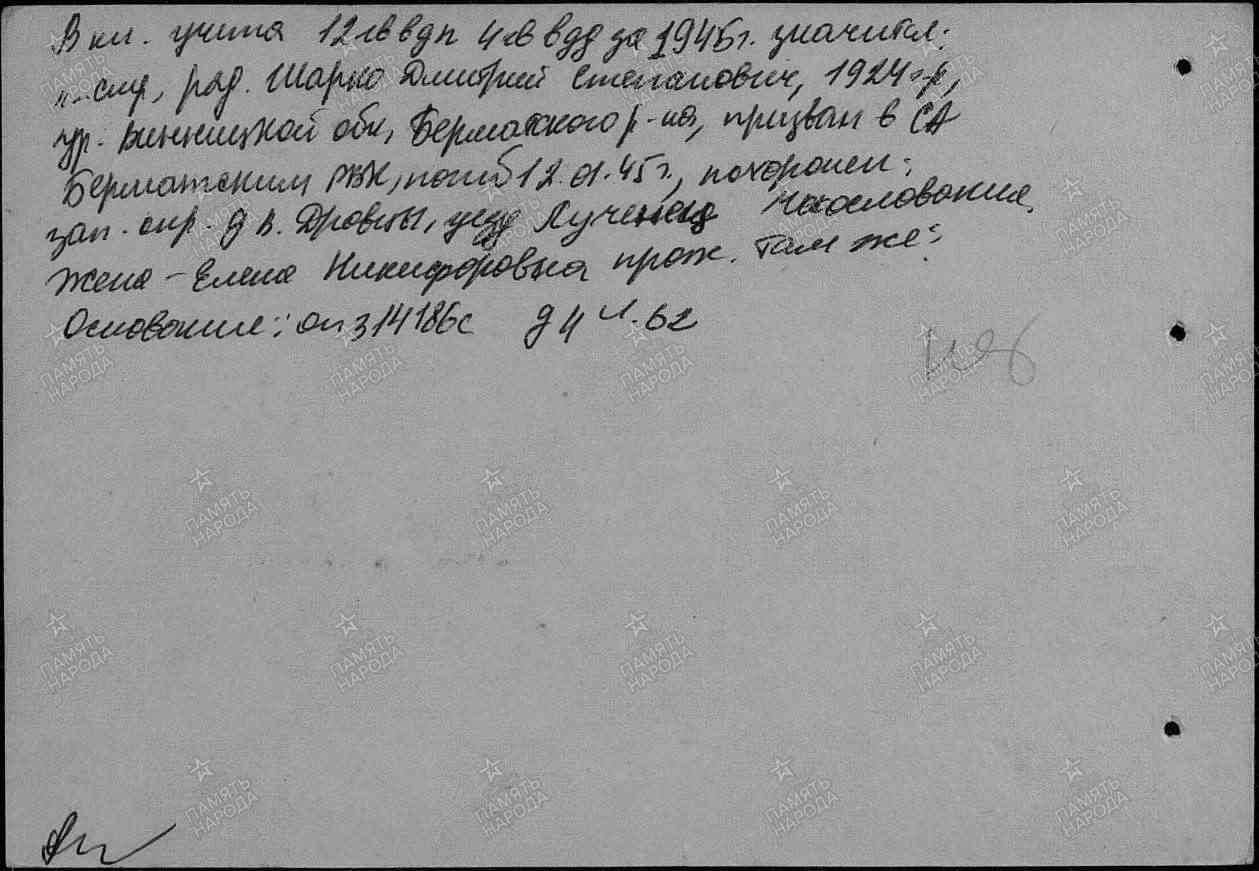 В кн. учета 12 гв вдп 4 гв вдд за 1945 г. значится:
стр, ряд. Шарко Дмитрий Степанович, 1924 г.р,
ур. Винницкой обл, Бершадского р-на, призван в СА
Бершадским РВК, погиб 12.01.45 г., похоронен:
зап. окр. д в. Дровцы, уезд Лученец Чехословакия.
Жена - Елена Никифоровна прож. там же.
Основание: оп 314186с д 4 л. 62